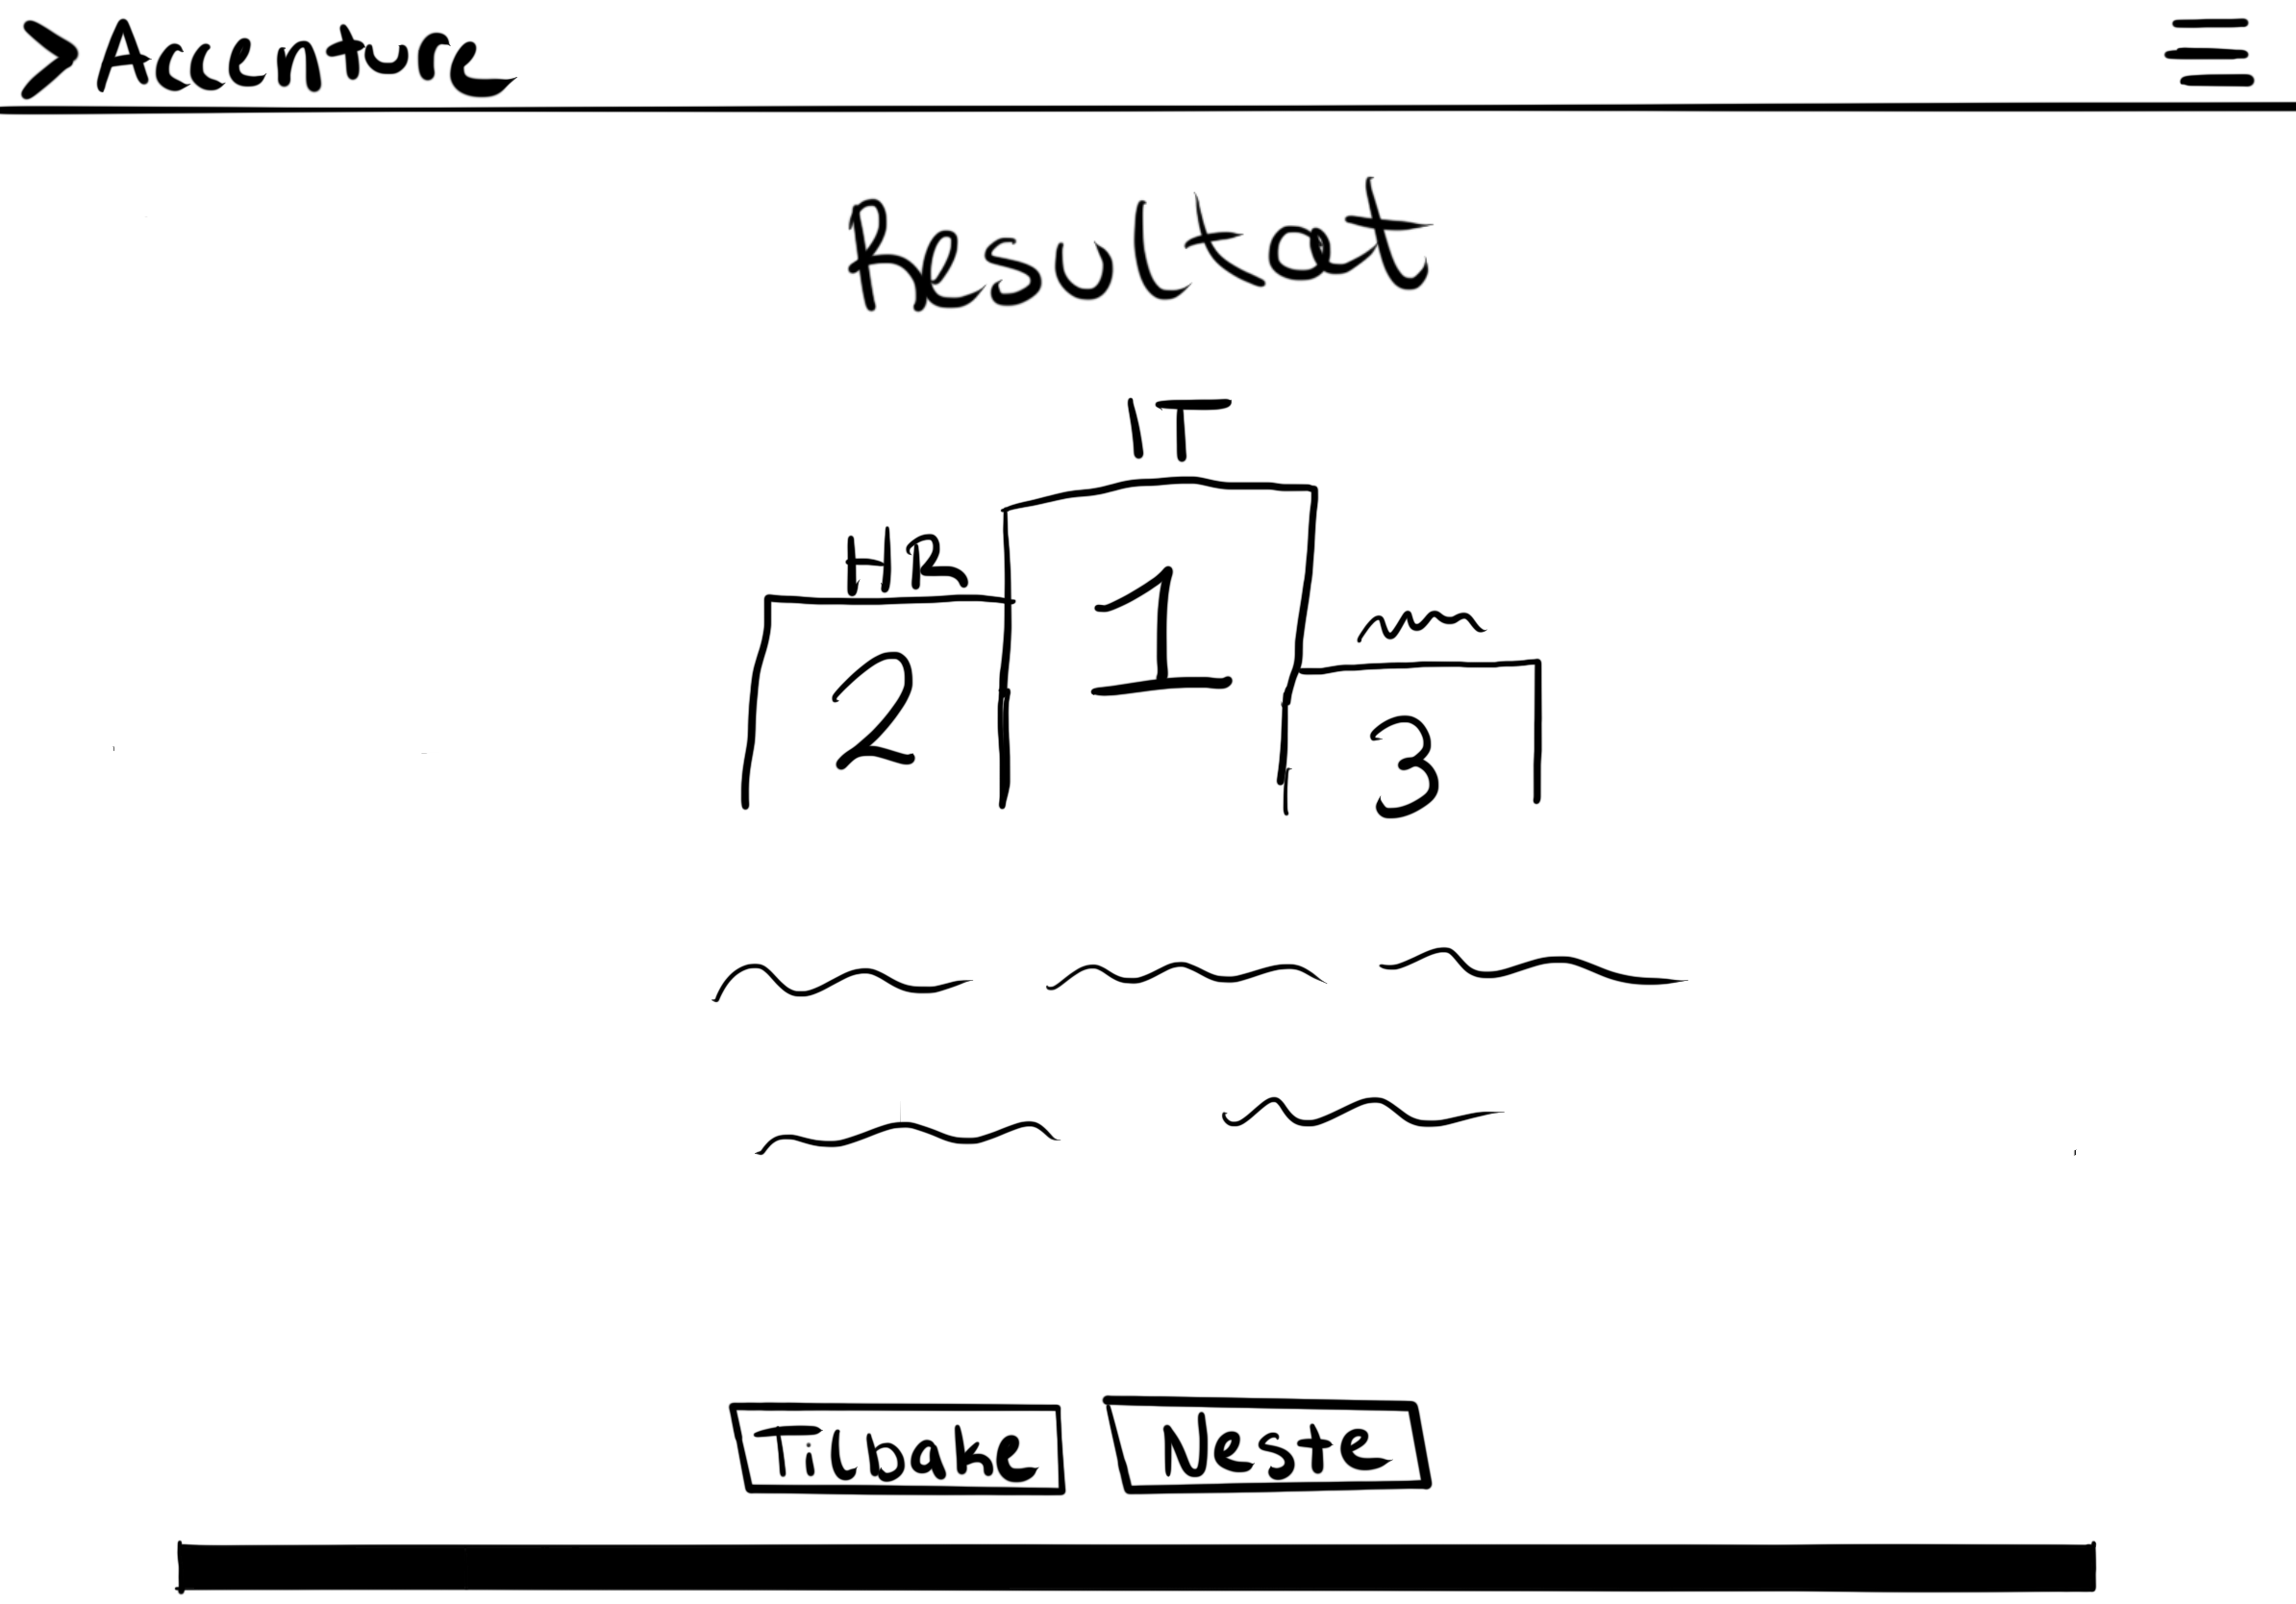 >Accenture
Resultat
IT
HR
1
2
3
Tilbake
Neste